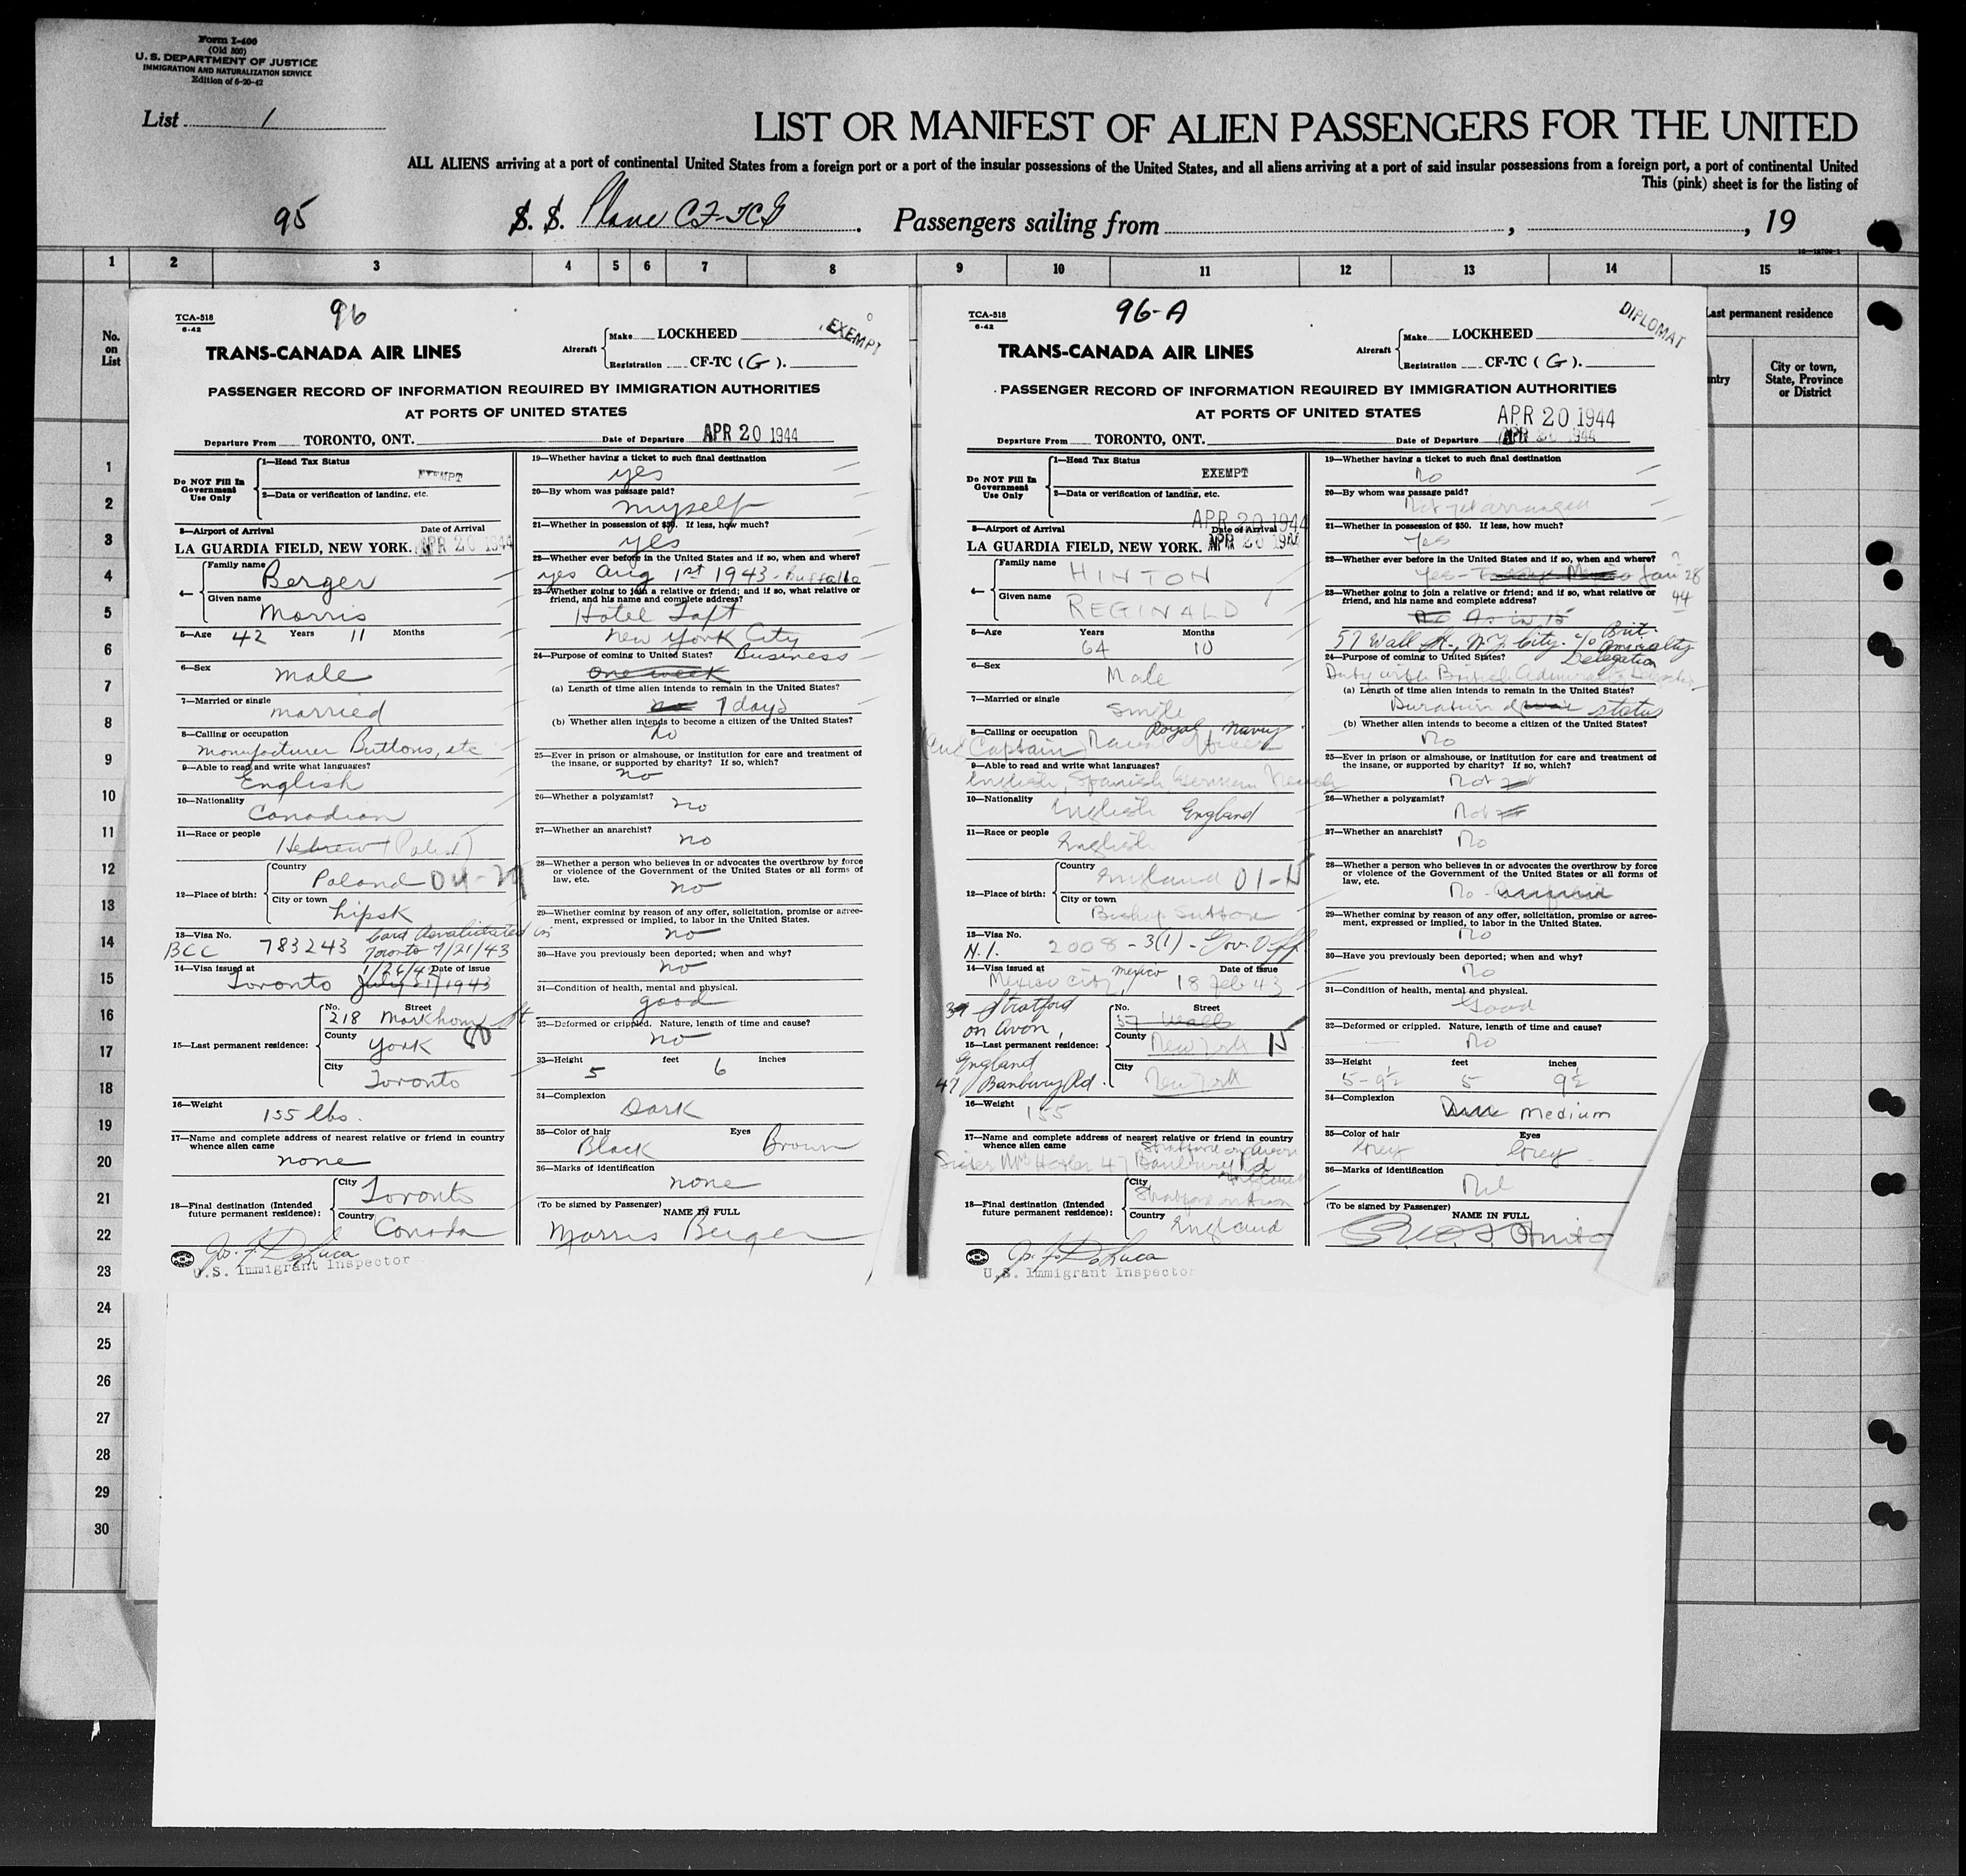 Form I-400
(Old 500)
U. S. DEPARTMENT OF JUSTICE
IMMIGRATION AND NATURALIZATION SERVICE
Edition of 6-20-42
List 1
LIST OR MANIFEST OF ALIEN PASSENGERS FOR THE UNITED
ALL ALIENS arriving at a port of continental United States from a foreign port or a port of the insular possessions of the United States, and all aliens arriving at a port of said insular possessions from a foreign port, a port of continental United
This (pink) sheet is for the listing of
95 S. S. Plane CF-TCG. Passengers sailing from , , 19
1 2 3 4 5 6 7 8 9 10 11 12 13 14 15
No. on List
Last permanent residence
City or town, State, Province or District
1
2
3
4
5
6
7
8
9
10
11
12
13
14
15
16
17
18
19
20
21
22
23
24
25
26
27
28
29
30
TCA-518
6-42
96
EXEMPT
TRANS-CANADA AIR LINES
Aircraft
Make LOCKHEED
Registration CF-TC (G).
PASSENGER RECORD OF INFORMATION REQUIRED BY IMMIGRATION AUTHORITIES
AT PORTS OF UNITED STATES
Departure From TORONTO, ONT. Date of Departure APR 20 1944
Do NOT Fill In Government Use Only
1—Head Tax Status EXEMPT
2—Data or verification of landing, etc.
3—Airport of Arrival Date of Arrival
LA GUARDIA FIELD, NEW YORK. APR 20 1944
4— Family name Berger
Given name Morris
5—Age 42 Years 11 Months
6—Sex
male
7—Married or single
married
8—Calling or occupation
Manufacturer Buttons, etc
9—Able to read and write what languages?
English
10—Nationality
Canadian
11—Race or people
Hebrew (Polish)
12—Place of birth: Country Poland 04-
City or town Lipsk
13—Visa No.
BCC 783243 Card Revalidated in
Toronto 7/21/43
14—Visa issued at Date of issue
Toronto July 21/1943
15—Last permanent residence:
No. Street
218 Markham St
County York 80
City Toronto
16—Weight 155 lbs.
17—Name and complete address of nearest relative or friend in country
whence alien came
none
18—Final destination (Intended future permanent residence):
City Toronto
Country Canada
Jos. F. DeLuca
U.S. Immigrant Inspector
19—Whether having a ticket to such final destination
yes
20—By whom was passage paid?
myself
21—Whether in possession of $50. If less, how much?
yes
22—Whether ever before in the United States and if so, when and where?
yes Aug 1st 1943 - Buffalo
23—Whether going to join a relative or friend; and if so, what relative or
friend, and his name and complete address?
Hotel Taft
New York City
24—Purpose of coming to United States? Business
One week
(a) Length of time alien intends to remain in the United States?
7 days
(b) Whether alien intends to become a citizen of the United States?
No
25—Ever in prison or almshouse, or institution for care and treatment of
the insane, or supported by charity? If so, which?
no
26—Whether a polygamist? no
27—Whether an anarchist? no
28—Whether a person who believes in or advocates the overthrow by force
or violence of the Government of the United States or all forms of
law, etc.
no
29—Whether coming by reason of any offer, solicitation, promise or agree-
ment, expressed or implied, to labor in the United States.
no
30—Have you previously been deported; when and why?
no
31—Condition of health, mental and physical.
good
32—Deformed or crippled. Nature, length of time and cause?
no
33—Height feet inches
5 6
34—Complexion
Dark
35—Color of hair Eyes
Black Brown
36—Marks of identification
none
(To be signed by Passenger) NAME IN FULL
Morris Berger
TCA-518
6-42
96-A
DIPLOMAT
TRANS-CANADA AIR LINES
Aircraft
Make LOCKHEED
Registration CF-TC (G).
PASSENGER RECORD OF INFORMATION REQUIRED BY IMMIGRATION AUTHORITIES
AT PORTS OF UNITED STATES
APR 20 1944
Departure From TORONTO, ONT. Date of Departure APR 20 1944
Do NOT Fill In Government Use Only
1—Head Tax Status EXEMPT
2—Data or verification of landing, etc.
APR 20 1944
3—Airport of Arrival Date of Arrival
LA GUARDIA FIELD, NEW YORK. APR 20 1944
4— Family name HINTON
Given name REGINALD
5—Age Years Months
64 10
6—Sex
Male
7—Married or single
Single
8—Calling or occupation Royal Navy
Captain
9—Able to read and write what languages?
English, Spanish German French
10—Nationality
English England
11—Race or people
English
12—Place of birth: Country England 01-15
City or town Bishop Sutton
13—Visa No.
N.I. 2008 - 3(1) - Gov. Off.
14—Visa issued at Date of issue
Mexico City, Mexico 18 Feb 43
Stratford
on Avon,
15—Last permanent residence:
England
47 Banbury Rd.
No. Street
57 Wall
County New York 15
City New York
16—Weight 155
17—Name and complete address of nearest relative or friend in country
whence alien came Stratford on Avon
Sister Mrs 47 Banbury Rd
England
18—Final destination (Intended future permanent residence):
City Stratford on Avon
Country England
Jos. F. DeLuca
U.S. Immigrant Inspector
19—Whether having a ticket to such final destination
No
20—By whom was passage paid?
Not yet arranged
21—Whether in possession of $50. If less, how much?
Yes
22—Whether ever before in the United States and if so, when and where?
Yes - Mexico Jan 28
44
23—Whether going to join a relative or friend; and if so, what relative or
friend, and his name and complete address?
No As in 15
57 Wall St., N.Y. City. c/o Brit.
Admiralty
Delegation
24—Purpose of coming to United States?
Duty with British Admiralty
(a) Length of time alien intends to remain in the United States?
Duration of war status
(b) Whether alien intends to become a citizen of the United States?
No
25—Ever in prison or almshouse, or institution for care and treatment of
the insane, or supported by charity? If so, which?
Not
26—Whether a polygamist?
Not
27—Whether an anarchist?
No
28—Whether a person who believes in or advocates the overthrow by force
or violence of the Government of the United States or all forms of
law, etc.
No
29—Whether coming by reason of any offer, solicitation, promise or agree-
ment, expressed or implied, to labor in the United States.
No
30—Have you previously been deported; when and why?
No
31—Condition of health, mental and physical.
Good
32—Deformed or crippled. Nature, length of time and cause?
No
33—Height feet inches
5-9½ 5 9½
34—Complexion
Medium
35—Color of hair Eyes
Grey Grey
36—Marks of identification
Nil
(To be signed by Passenger) NAME IN FULL